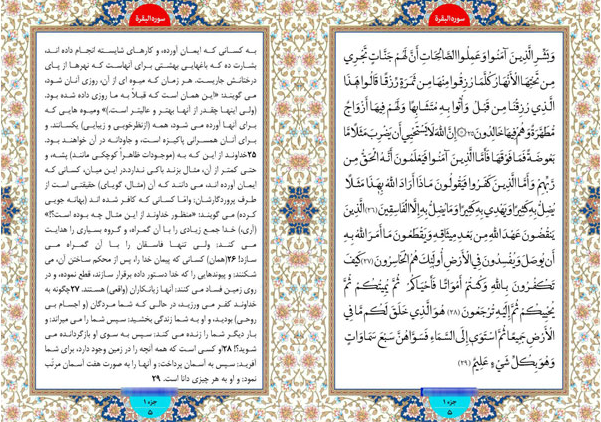 سوره البقرة
وَبَشِّرِ الَّذِينَ آمَنُوا وَعَمِلُوا الصَّالِحَاتِ أَنَّ لَهُمْ جَنَّاتٍ تَجْرِي
مِن تَحْتِهَا الْأَنْهَارُ كُلَّمَا رُزِقُوا مِنْهَا مِن ثَمَرَةٍ رِّزْقًا قَالُوا هَذَا
الَّذِي رُزِقْنَا مِن قَبْلُ وَأُتُوا بِهِ مُتَشَابِهًا وَلَهُمْ فِيهَا أَزْوَاجٌ
مُّطَهَّرَةٌ وَهُمْ فِيهَا خَالِدُونَ (٢٥) إِنَّ اللَّهَ لَا يَسْتَحْيِي أَن يَضْرِبَ مَثَلًا مَّا
بَعُوضَةً فَمَا فَوْقَهَا فَأَمَّا الَّذِينَ آمَنُوا فَيَعْلَمُونَ أَنَّهُ الْحَقُّ مِن
رَّبِّهِمْ وَأَمَّا الَّذِينَ كَفَرُوا فَيَقُولُونَ مَاذَا أَرَادَ اللَّهُ بِهَذَا مَثَلًا
يُضِلُّ بِهِ كَثِيرًا وَيَهْدِي بِهِ كَثِيرًا وَمَا يُضِلُّ بِهِ إِلَّا الْفَاسِقِينَ (٢٦) الَّذِينَ
يَنقُضُونَ عَهْدَ اللَّهِ مِن بَعْدِ مِيثَاقِهِ وَيَقْطَعُونَ مَا أَمَرَ اللَّهُ بِهِ
أَن يُوصَلَ وَيُفْسِدُونَ فِي الْأَرْضِ أُولَئِكَ هُمُ الْخَاسِرُونَ (٢٧) كَيْفَ
تَكْفُرُونَ بِاللَّهِ وَكُنتُمْ أَمْوَاتًا فَأَحْيَاكُمْ ثُمَّ يُمِيتُكُمْ ثُمَّ
يُحْيِيكُمْ ثُمَّ إِلَيْهِ تُرْجَعُونَ (٢٨) هُوَ الَّذِي خَلَقَ لَكُم مَّا فِي
الْأَرْضِ جَمِيعًا ثُمَّ اسْتَوَى إِلَى السَّمَاءِ فَسَوَّاهُنَّ سَبْعَ سَمَاوَاتٍ
وَهُوَ بِكُلِّ شَيْءٍ عَلِيمٌ (٢٩)
جزء ۱
۵
سوره البقرة
به کسانی که ایمان آورده، و کارهای شایسته انجام داده اند،
بشارت ده که باغهایی بهشتی برای آنهاست که نهرها از پای
درختانش جاریست. هر زمان که میوه ای از آن، روزی آنان شود،
می گویند: «این همان است که قبلاً به ما روزی داده شده بود.
(ولی اینها چقدر از آنها بهتر و عالیتر است.)» و میوه هایی که
برای آنها آورده می شود، همه (ازنظرخوبی و زیبایی) یکسانند. و
برای آنان همسرانی پاکیزه است، و جاودانه در آن خواهند بود.
۲۵خداوند از این که به (موجودات ظاهراً کوچکی مانند) پشه، و
حتی کمتر از آن، مثال بزند باکی ندارد.در این میان، کسانی که
ایمان آورده اند، می دانند که آن (مثال، گویای) حقیقتی است از
طرف پروردگارشان; وامّا کسانی که کافر شده اند (بهانه جویی
کرده) می گویند: «منظور خداوند از این مثال چه بوده است؟!»
(آری،) خدا جمع زیادی را با آن گمراه، و گروه بسیاری را هدایت
می کند; ولی تنها فاسقان را با آن گمراه می
سازد! ۲۶(همان) کسانی که پیمان خدا را، پس از محکم ساختن آن، می
شکنند; و پیوندهایی را که خدا دستور داده برقرار سازند، قطع نموده، و در
روی زمین فساد می کنند; آنها زیانکاران (واقعی) هستند. ۲۷چگونه به
خداوند کفر می ورزید، در حالی که شما مردگان (و اجسام بی
روحی) بودید، و او به شما زندگی بخشید; سپس شما را می میراند; و
بار دیگر شما را زنده می کند; سپس به سوی او بازگردانده می
شوید؟! ۲۸او کسی است که همه آنچه را در زمین وجود دارد، برای شما
آفرید; سپس به آسمان پرداخت; و آنها را به صورت هفت آسمان مرتّب
نمود; و او به هر چیزی دانا است. ۲۹
جزء ۱
۵